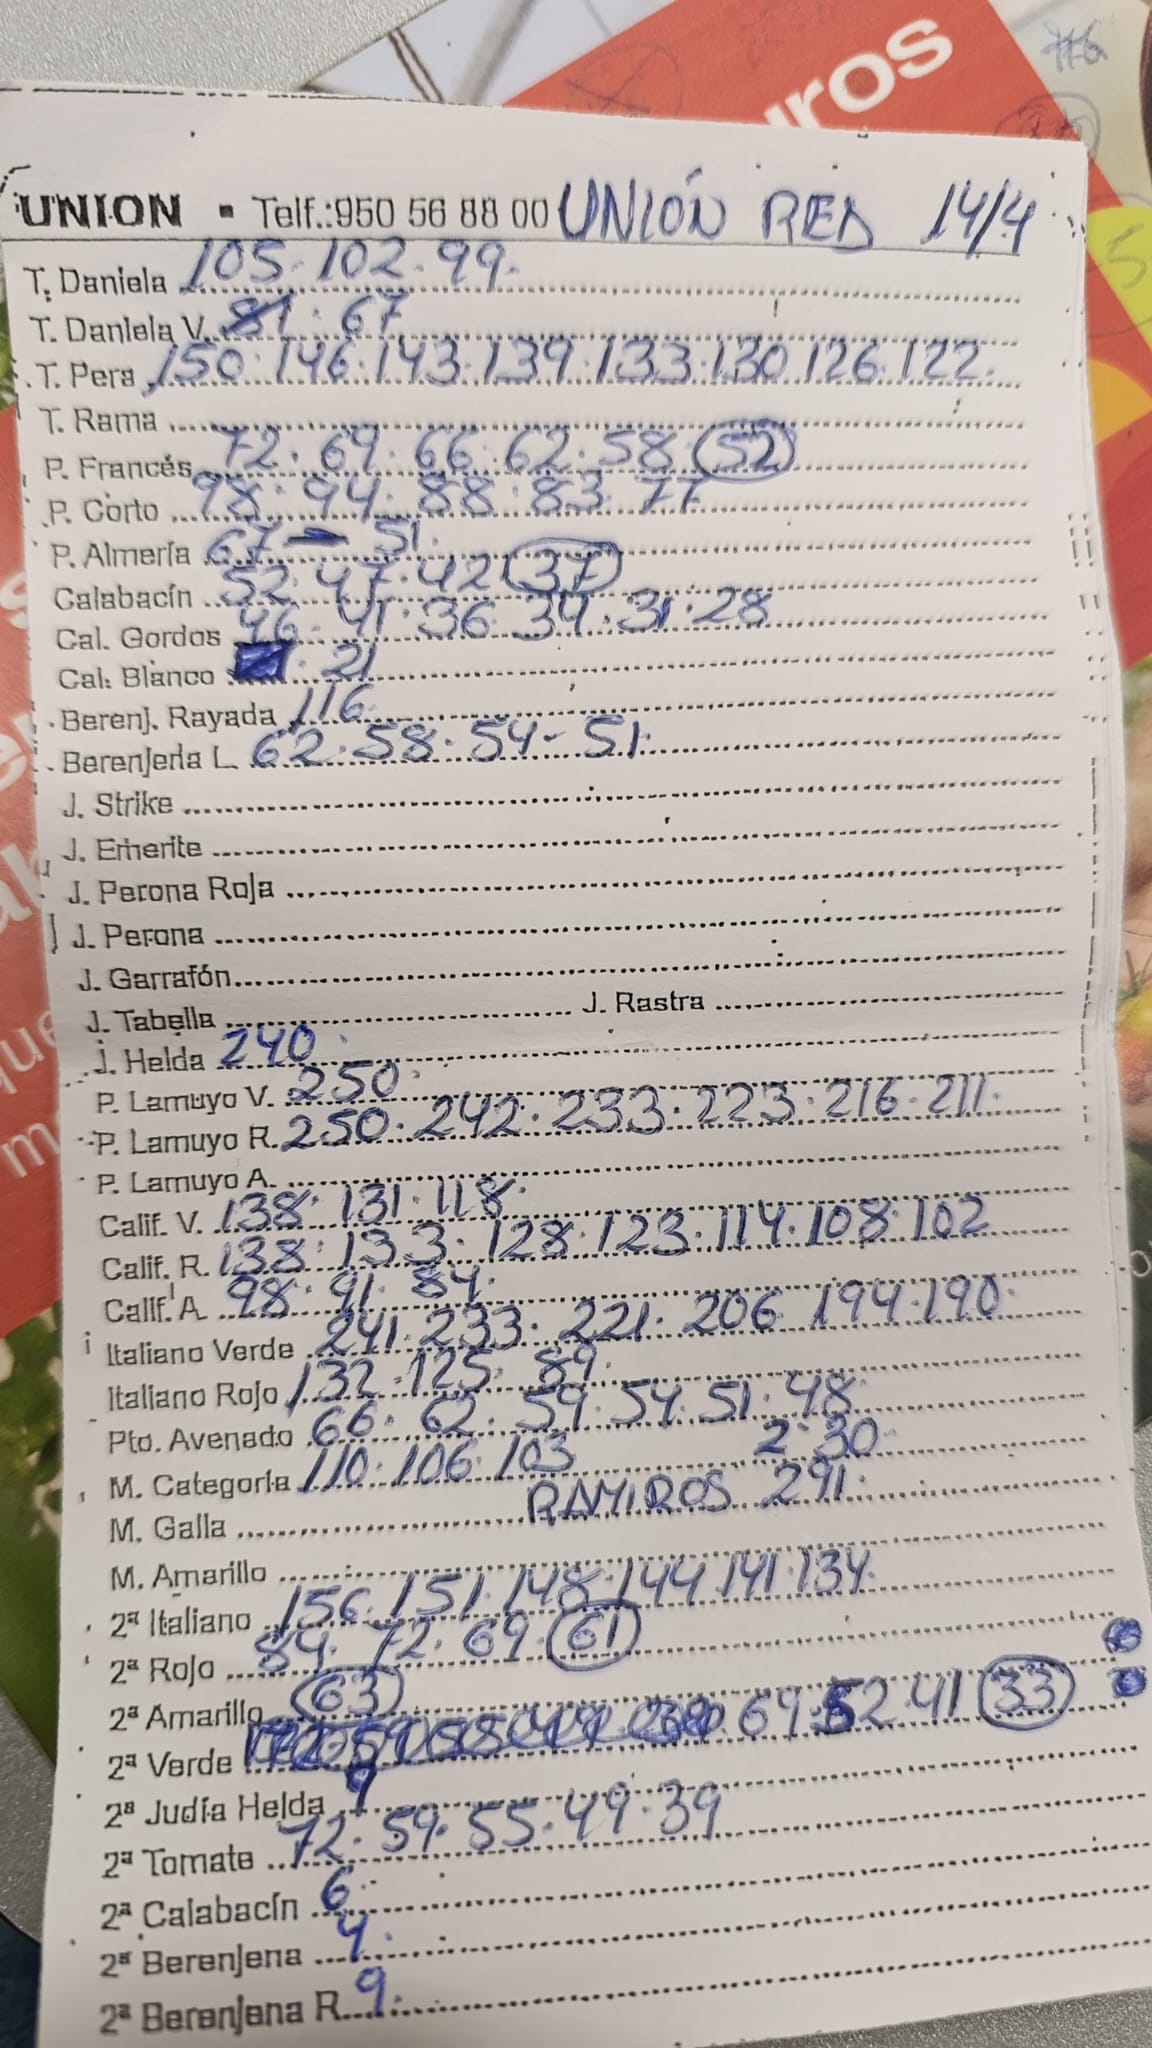 uros
UNION ▪ Telf.:950 56 88 00 UNIÓN RED 14/4
T. Daniela 105. 102. 99.
T. Daniela V. 81. 67
T. Pera 150. 146. 143. 139. 133. 130 126. 122.
T. Rama
P. Francés 72. 69. 66. 62. 58. 52
P. Corto 98. 94. 88. 83. 77
P. Almería 67 - 51.
Calabacín 52. 47. 42 37
Cal. Gordos 46. 41. 36. 34. 31. 28
Cal. Blanco 21
Berenj. Rayada 116.
Berenjena L. 62. 58. 54- 51.
J. Strike
J. Emerite
J. Perona Roja
J. Perona
J. Garrafón
J. Tabella J. Rastra
J. Helda 240.
P. Lamuyo V. 250.
P. Lamuyo R. 250. 242. 233. 223. 216. 211.
P. Lamuyo A.
Calif. V. 138. 131. 118.
Calif. R. 138. 133. 128. 123. 114. 108. 102
Calif. A 98. 91. 84.
Italiano Verde 241. 233. 221. 206 194. 190.
Italiano Rojo 132. 125. 89.
Pto. Avenado 66. 62. 59. 54. 51. 48.
M. Categoría 110. 106. 103 2.30
M. Galla RAMIROS 291.
M. Amarillo
2ª Italiano 156. 151. 148. 144 141. 134.
2ª Rojo 84. 72. 69. 61
2ª Amarillo 63
2ª Verde 69. 52 41 33
2ª Judía Helda 9
2ª Tomate 72. 59. 55. 49. 39
2ª Calabacín 6.
2ª Berenjena 4.
2ª Berenjena R. 9.